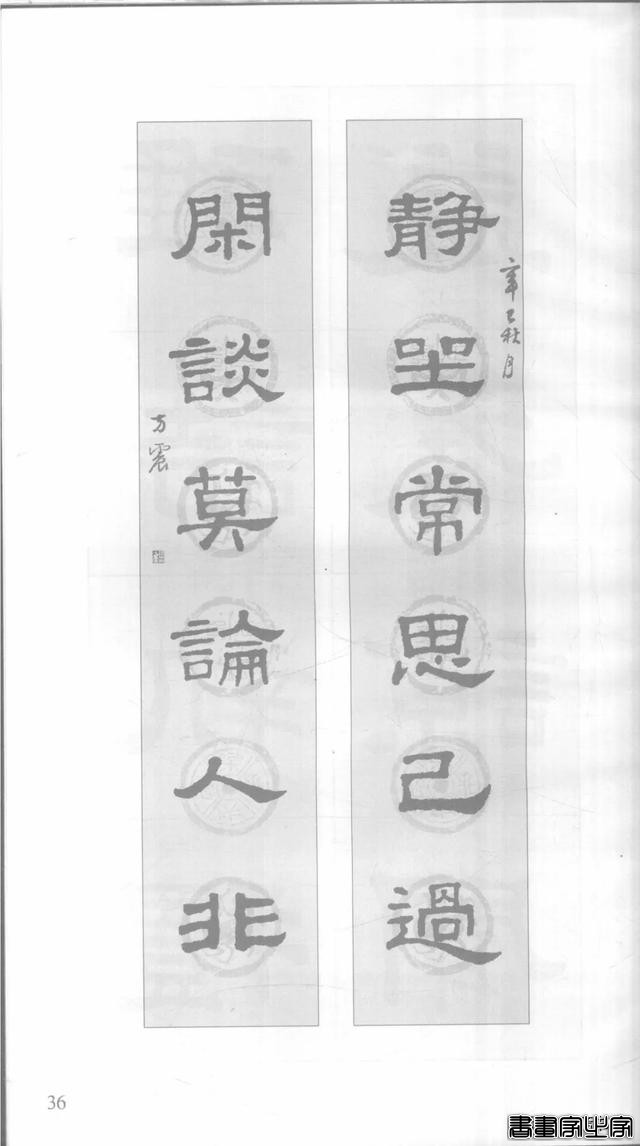 静坐常思己過
辛巳秋月
閑談莫論人非
方震
36
書畫家之家